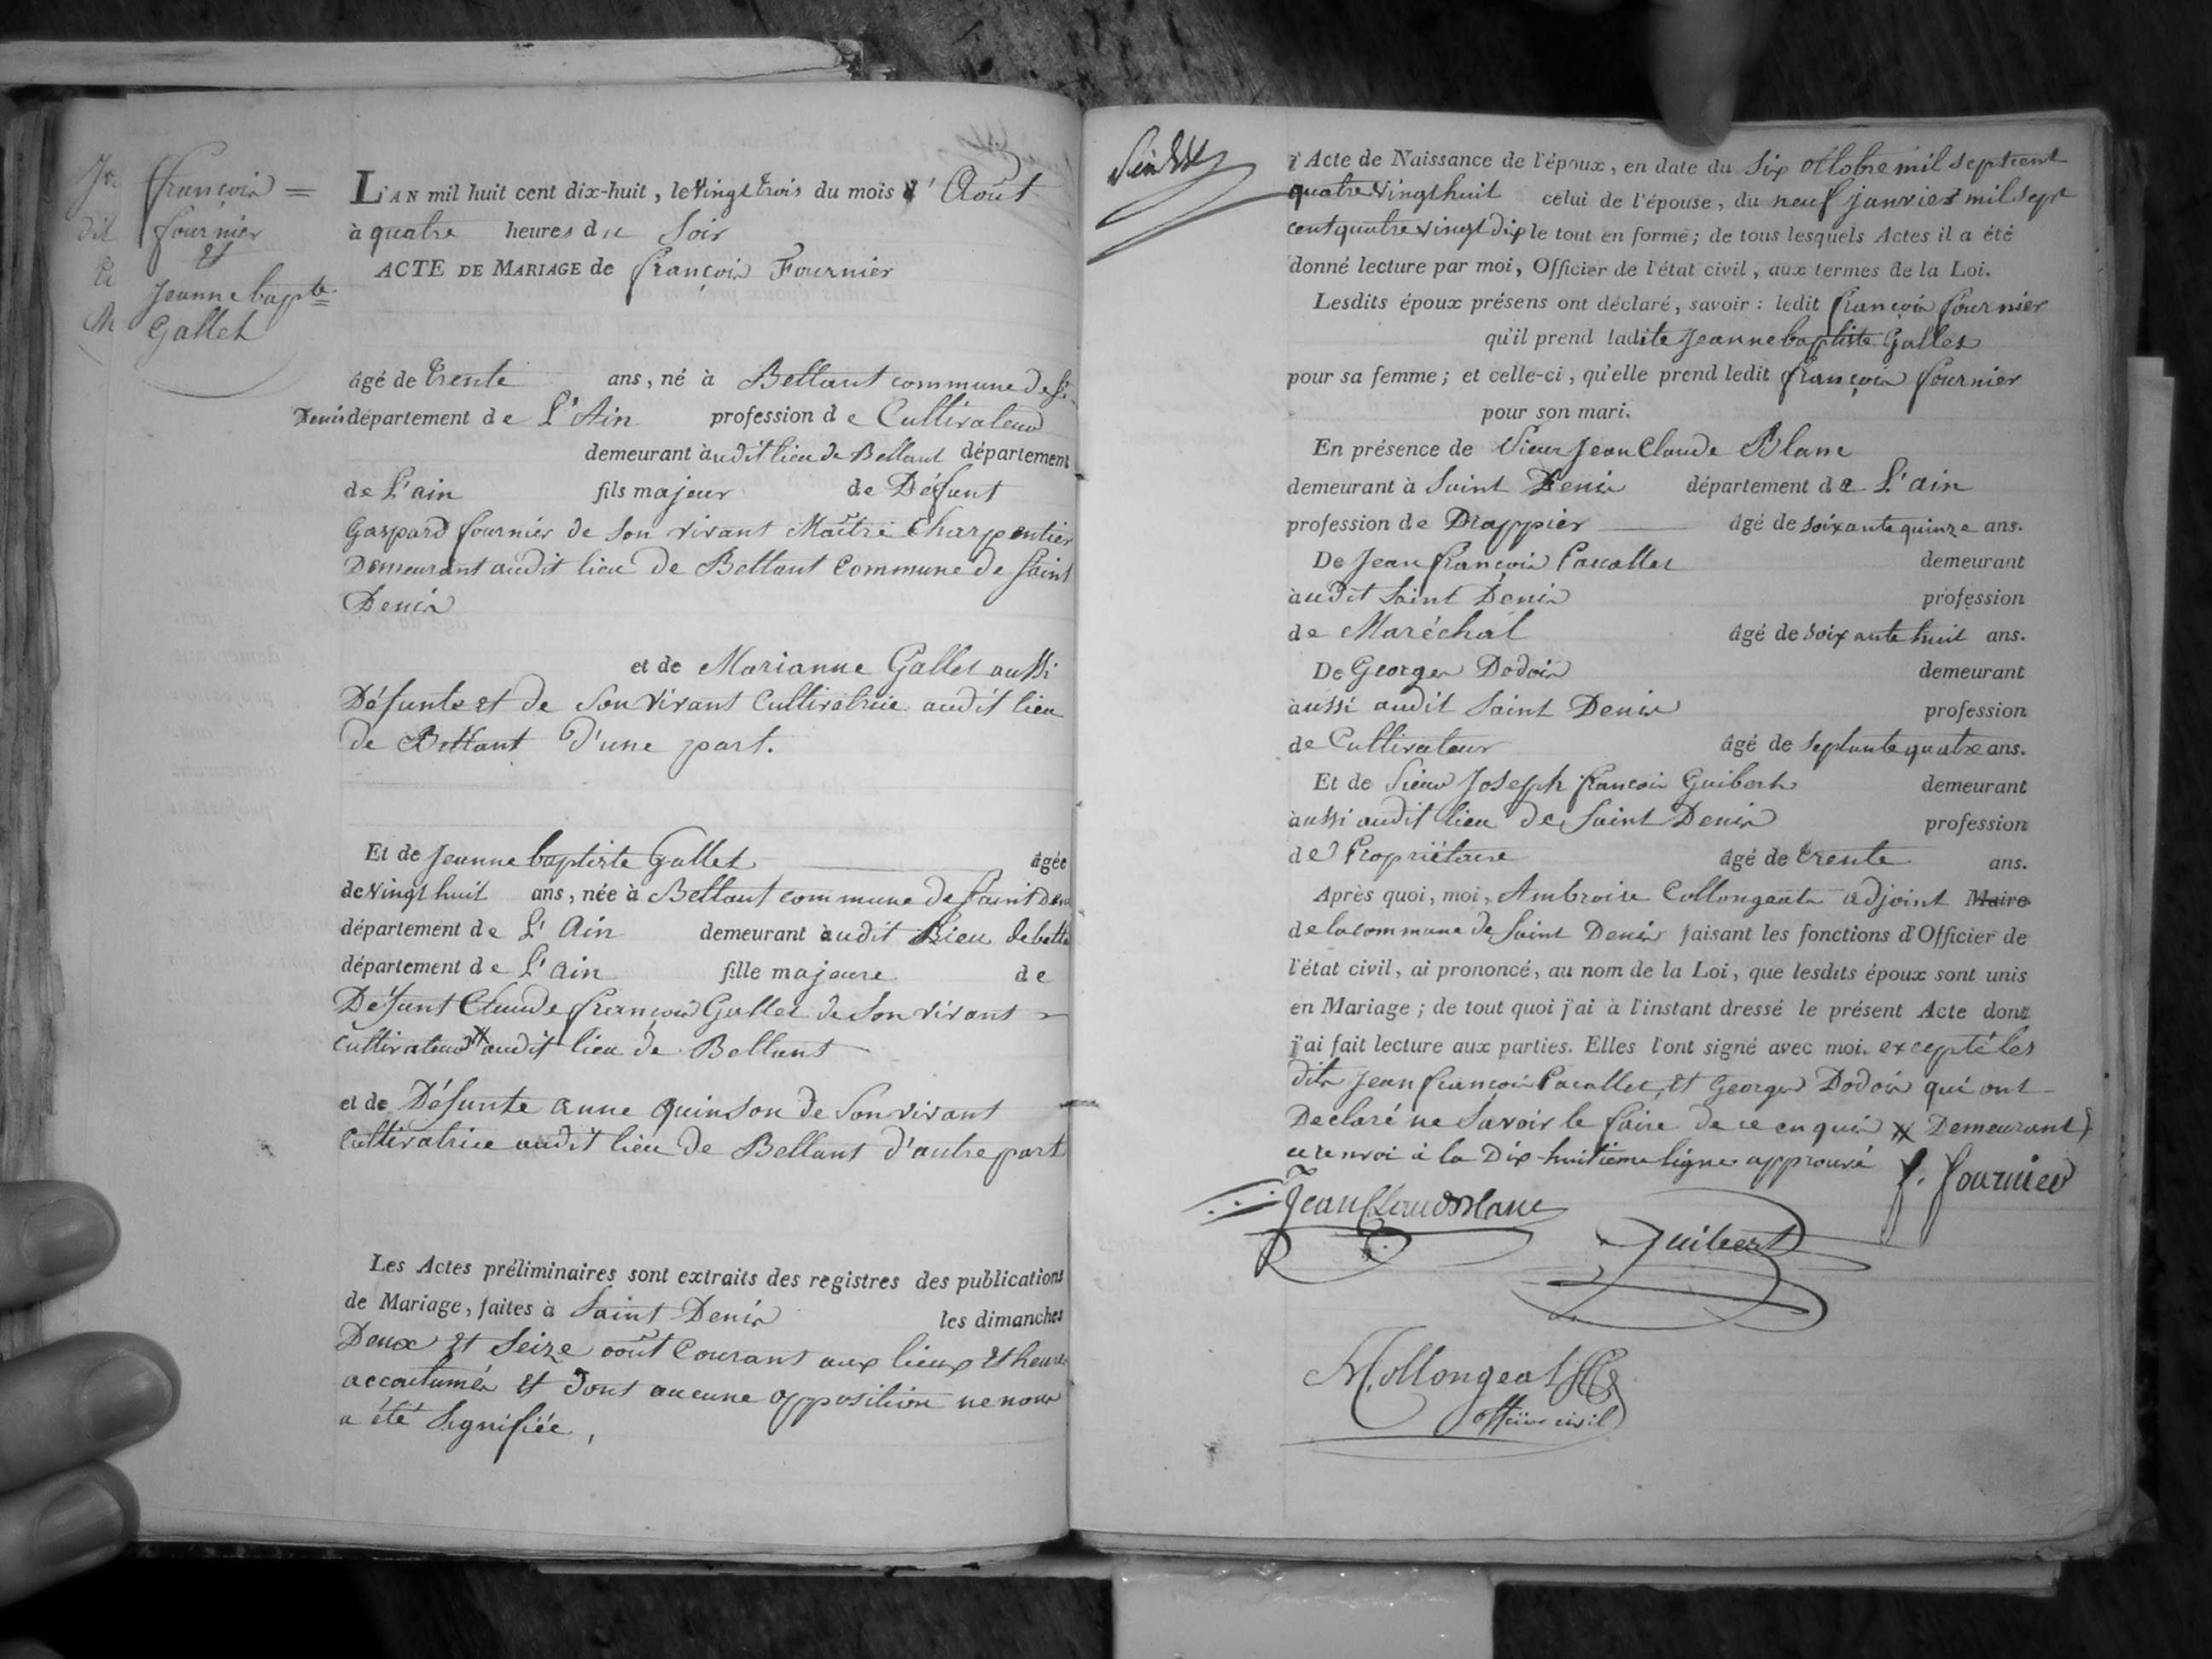 françois =
fournier
et
Jeanne bapte
Gallet
L'AN mil huit cent dix-huit, le Vingt trois du mois d'Août
à quatre heures du Soir
ACTE DE MARIAGE de françois Fournier
âgé de trente ans, né à Bettant commune de St.
Denis département de L'Ain profession de Cultivateur
demeurant audit lieu de Bettant département
de L'ain fils majeur de Défunt
Gaspard fournier de Son vivant Maître Charpentier
Demeurant audit lieu de Bettant Commune de Saint
Denis
et de Marianne Gallet aussi
Défunte et de Son Vivant Cultivatrice audit lieu
de Bettant D'une part.
Et de Jeanne baptiste Gallet âgée
de vingt huit ans, née à Bettant commune de Saint Denis
département de L'Ain demeurant audit Lieu de betta
département de L'ain fille majeure de
Défunt Claude françois Gallet de Son vivant
Cultivateur audit lieu de Bettant
et de Défunte anne quinson de Son vivant
Cultivatrice audit lieu de Bettant d'autre part
Les Actes préliminaires sont extraits des registres des publications
de Mariage, faites à Saint Denis les dimanches
Deux et Seize août Courant aux lieux et heures
accoutumés et dont aucune opposition ne nous
a été Signifiée,
l'Acte de Naissance de l'époux, en date du Six octobre mil Sept cent
quatre Vingt huit celui de l'épouse, du neuf janvier mil Sept
cent quatre vingt dix le tout en forme; de tous lesquels Actes il a été
donné lecture par moi, Officier de l'état civil, aux termes de la Loi.
Lesdits époux présens ont déclaré, savoir: ledit françois fournier
qu'il prend ladite Jeanne baptiste Gallet
pour sa femme; et celle-ci, qu'elle prend ledit françois fournier
pour son mari.
En présence de Sieur Jean Claude Blanc
demeurant à Saint Denis département de L'ain
profession de Drappier âgé de Soixante quinze ans.
De Jean françois Pacallet demeurant
audit Saint Denis profession
de Maréchal âgé de Soixante huit ans.
De Georges Dodois demeurant
aussi audit Saint Denis profession
de Cultivateur âgé de Septante quatre ans.
Et de Sieur Joseph françois Guibert demeurant
aussi audit lieu de Saint Denis profession
de Propriétaire âgé de trente ans.
Après quoi, moi, Ambroise Collongeat adjoint Maire
de la commune de Saint Denis faisant les fonctions d'Officier de
l'état civil, ai prononcé, au nom de la Loi, que lesdits époux sont unis
en Mariage; de tout quoi j'ai à l'instant dressé le présent Acte dont
j'ai fait lecture aux parties. Elles l'ont signé avec moi. excepté les
dits Jean françois Pacallet, et Georges Dodois qui ont
Declaré ne Savoir le faire de ce enquis X Demeurant
ce renvoi à la Dix-huitième ligne approuvé
f. fournier
Jean Claud Blanc
Guibert
Collongeat
officier civil